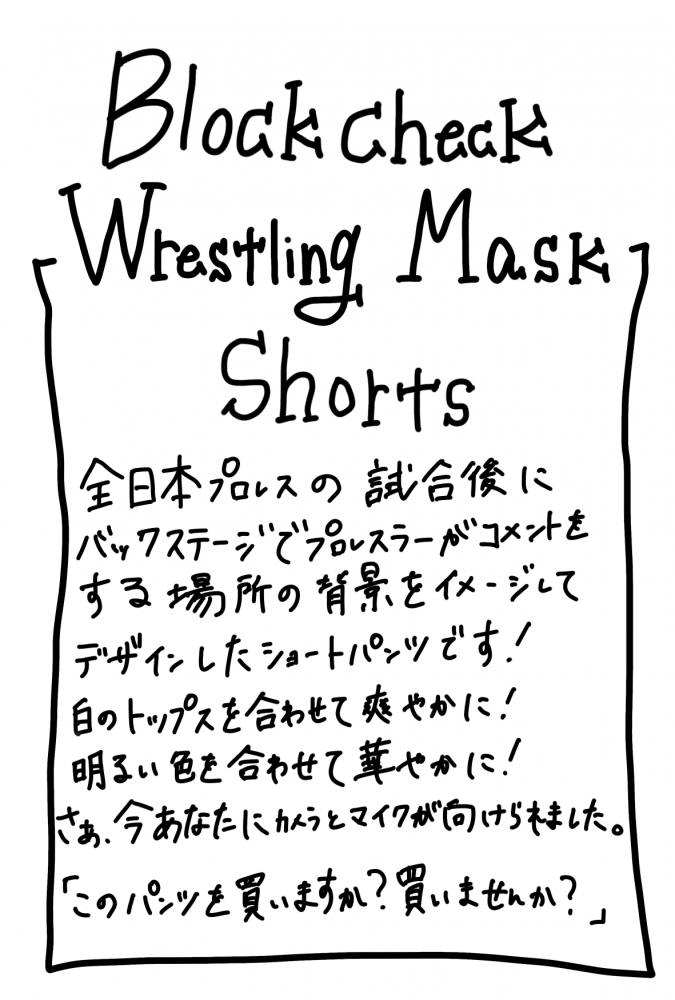 Block check
Wrestling Mask
Shorts
全日本プロレスの試合後に
バックステージでプロレスラーがコメントを
する場所の背景をイメージして
デザインしたショートパンツです!
白のトップスを合わせて爽やかに!
明るい色を合わせて華やかに!
さぁ、今あなたにカメラとマイクが向けられました。
「このパンツを買いますか?買いませんか?」